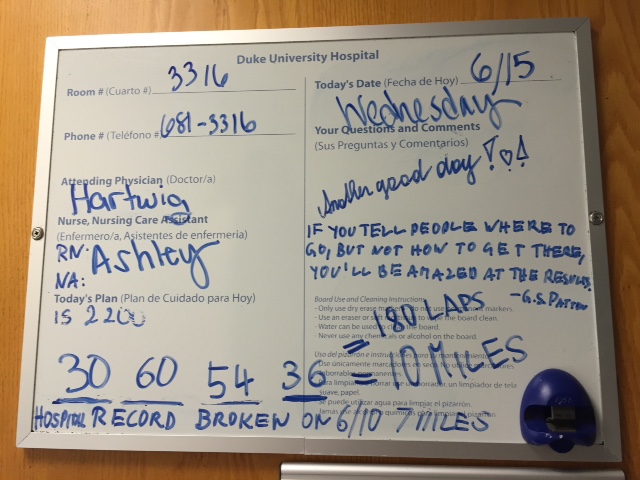 Duke University Hospital
Room # (Cuarto #) 3316
Phone # (Teléfono #) 681-3316
Attending Physician (Doctor/a)
Hartwig
Nurse, Nursing Care Assistant
(Enfermero/a, Asistentes de enfermeria)
RN: Ashley
NA:
Today's Plan (Plan de Cuidado para Hoy)
IS 2200
Today's Date (Fecha de Hoy) 6/15
Wednesday
Your Questions and Comments
(Sus Preguntas y Comentarios)
Another good day!
IF YOU TELL PEOPLE WHERE TO
GO, BUT NOT HOW TO GET THERE,
YOU'LL BE AMAZED AT THE RESULTS.
-G.S. PATTON
Board Use and Cleaning Instructions
- Only use dry erase markers, do not use markers.
- Use an eraser or soft to wipe the board clean.
- Water can be used to the board.
- Never use any chemicals or alcohol on the board.
Uso del pizarrón e instrucciones
= 180 LAPS
30 60 54 36 = 10 MILES
un limpiador de tela
suave, papel.
Se puede utilizar agua para limpiar el pizarrón.
HOSPITAL RECORD BROKEN ON 6/10 7 MILES